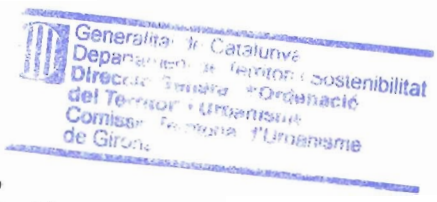 Generalitat de Catalunya
Departament de Territori i Sostenibilitat
Direcció General d'Ordenació
del Territori i Urbanisme
Comissió Territorial d'Urbanisme
de Girona